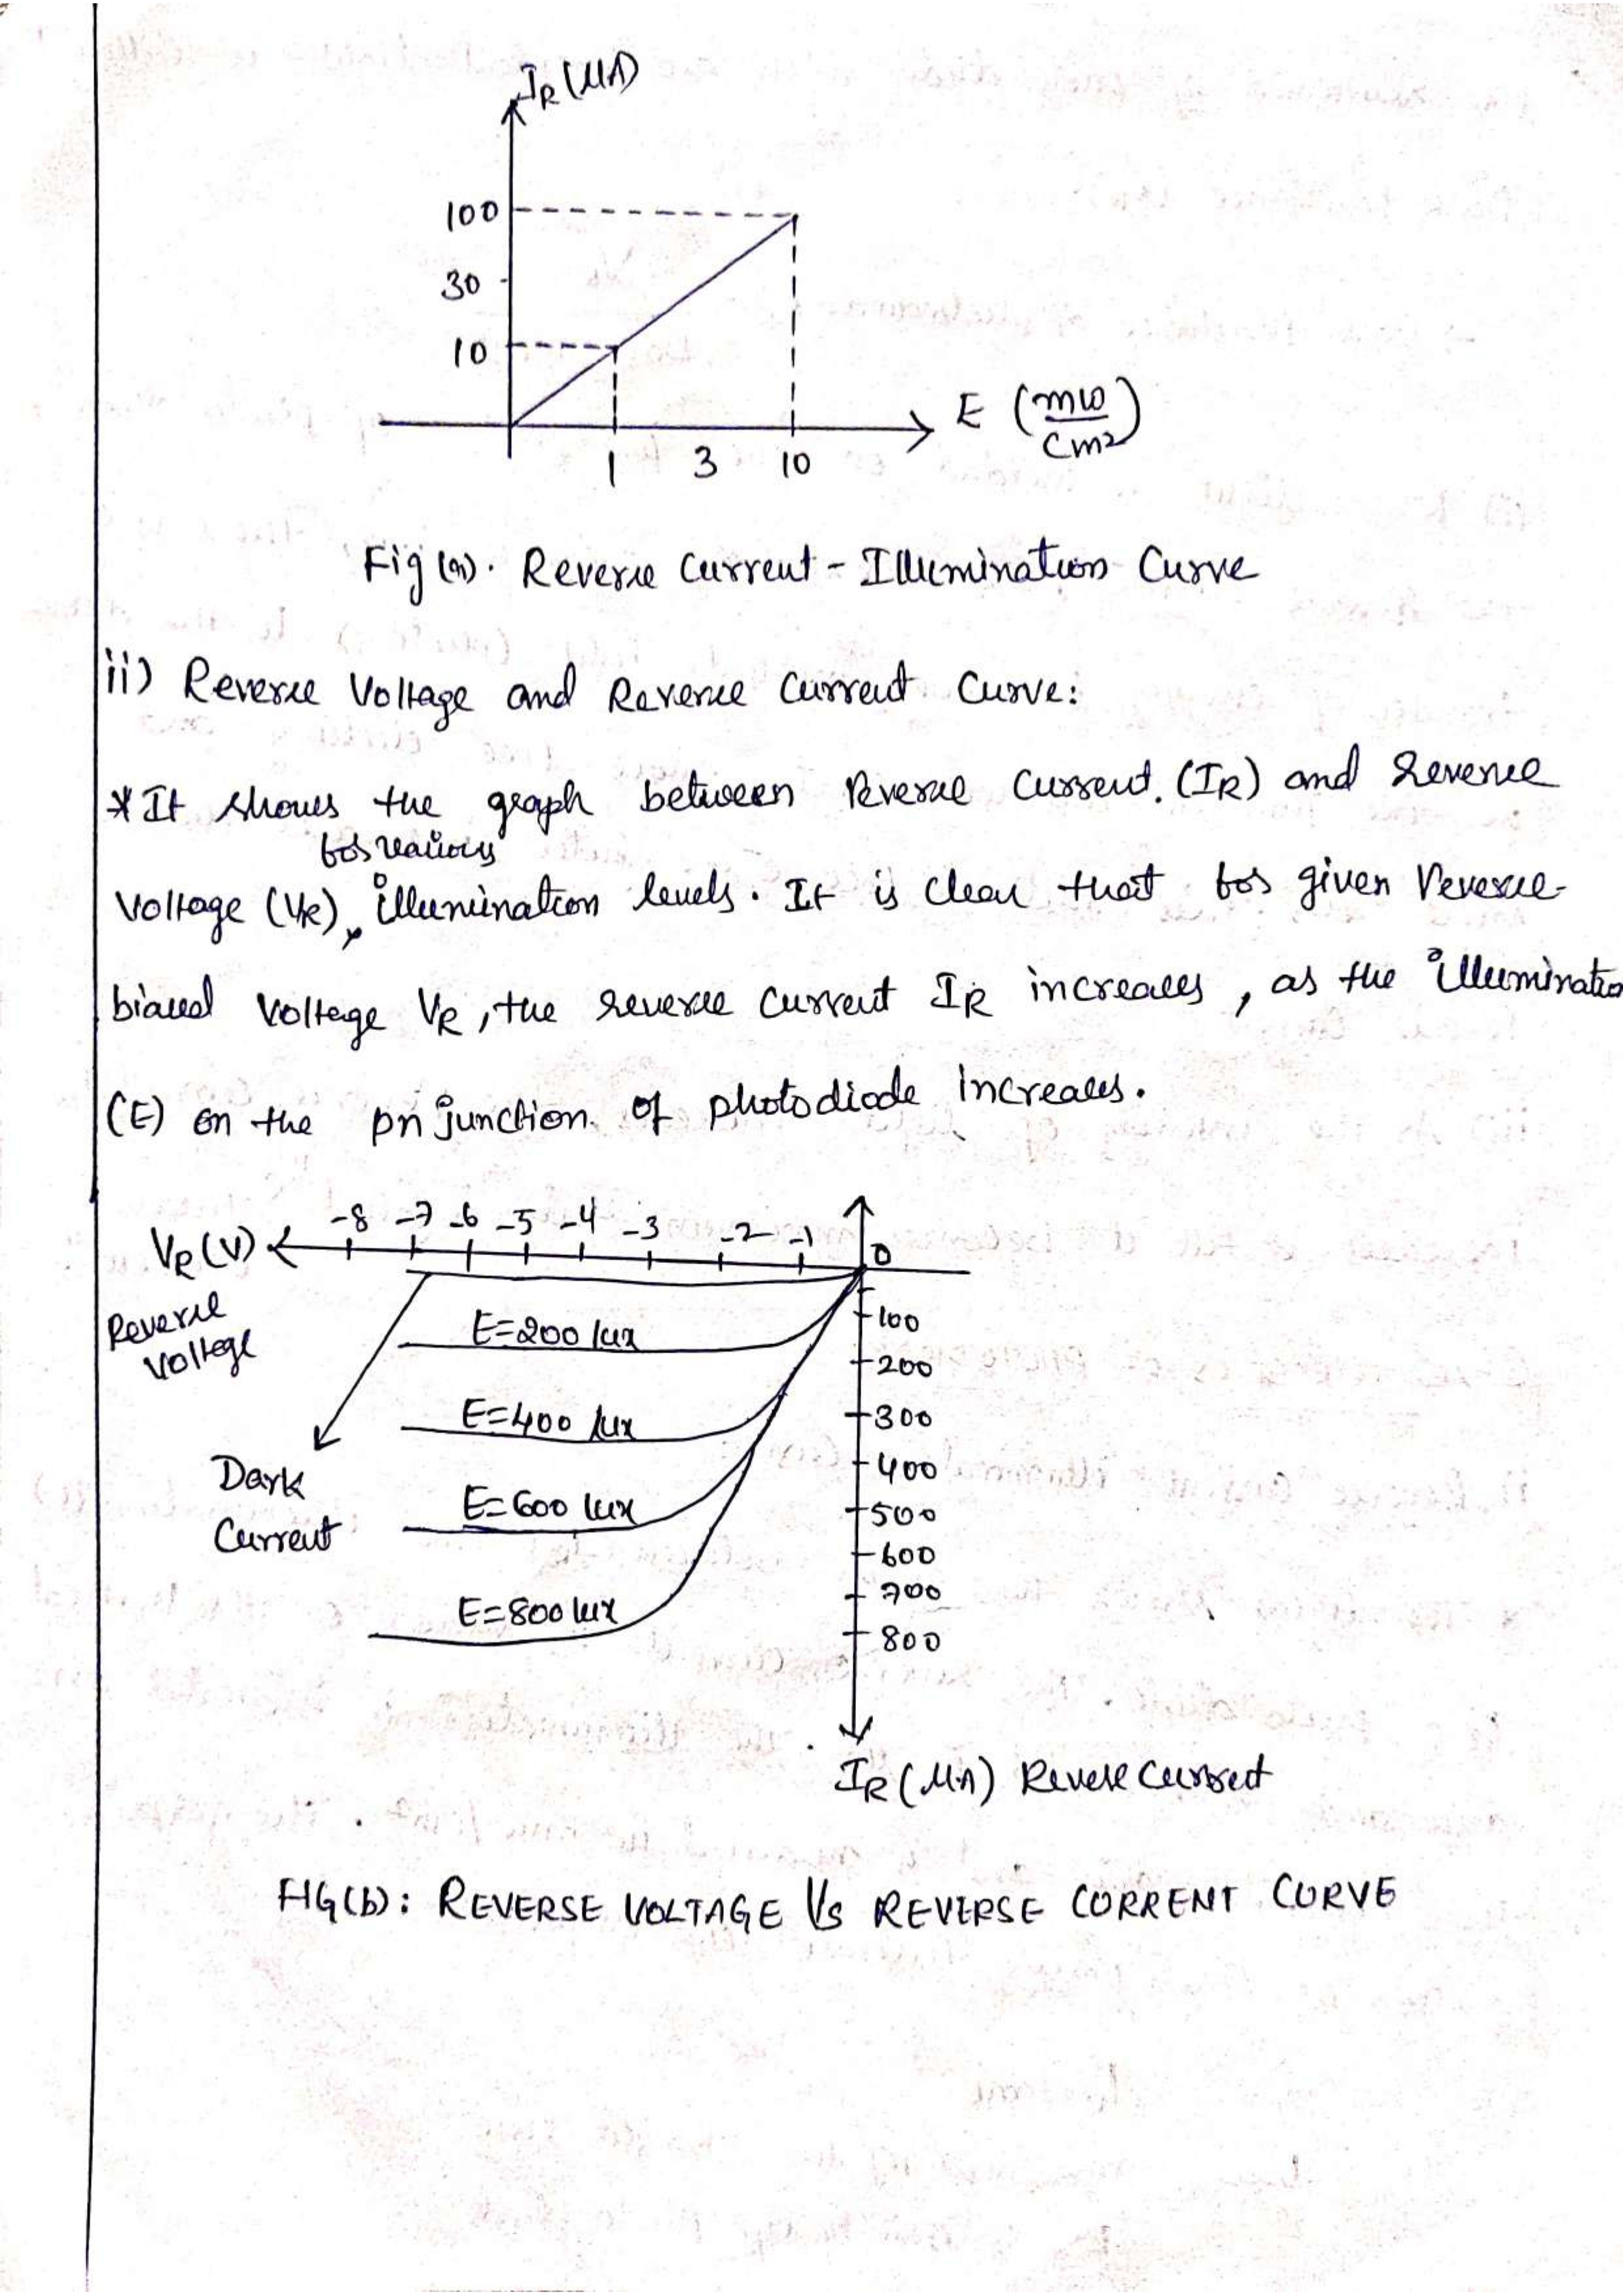 IR (μA)
100
30
10
E (mw/cm2)
1 3 10
Fig (a). Reverse Current - Illumination Curve
ii) Reverse Voltage and Reverse Current Curve:
* It shows the graph between Reverse Current. (IR) and Reverse
for various
Voltage (VR), illumination levels. It is clear that for given Reverse-
biased Voltage VR, the reverse current IR increases, as the illuminatio
(E) on the pn junction. of photodiode increases.
-8 -7 -6 -5 -4 -3 -2 -1
VR (V)
0
Reverse
Voltage
100
E=200 lux
200
E=400 lux
300
Dark
Current
400
E=600 lux
500
600
700
E=800 lux
800
IR (μA) Reverse Current
FIG(b): REVERSE VOLTAGE Vs REVERSE CORRENT CURVE